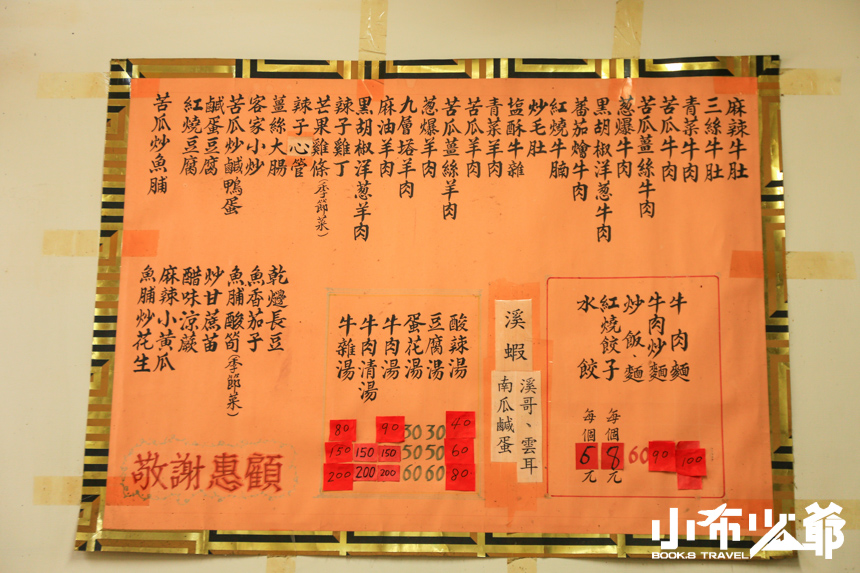 麻辣牛肚
三絲牛肚
青菜牛肉
苦瓜牛肉
苦瓜薑絲牛肉
蔥爆牛肉
黑胡椒洋蔥牛肉
蕃茄燴牛肉
紅燒牛腩
炒毛肚
塩酥牛雜
青菜羊肉
苦瓜羊肉
苦瓜薑絲羊肉
蔥爆羊肉
九層塔羊肉
麻油羊肉
黑胡椒洋蔥羊肉
辣子雞丁
芒果雞條(季節菜)
辣子心管
薑絲大腸
客家小炒
苦瓜炒鹹鴨蛋
鹹蛋豆腐
紅燒豆腐
苦瓜炒魚脯
牛肉麵 100
牛肉炒麵 90
炒飯、麵 60
紅燒餃子 每個8元
水餃 每個5元
溪蝦
溪哥、雲耳
南瓜鹹蛋
酸辣湯 40 60 80
豆腐湯 30 50 60
蛋花湯 30 50 60
牛肉湯 90 150 200
牛肉清湯 150 200
牛雜湯 80 150 200
乾煸長豆
魚香茄子
魚脯酸筍(季節菜)
炒甘蔗苗
醋味涼蕨
麻辣小黃瓜
魚脯炒花生
敬謝惠顧
小布少爺
BOOK.B TRAVEL